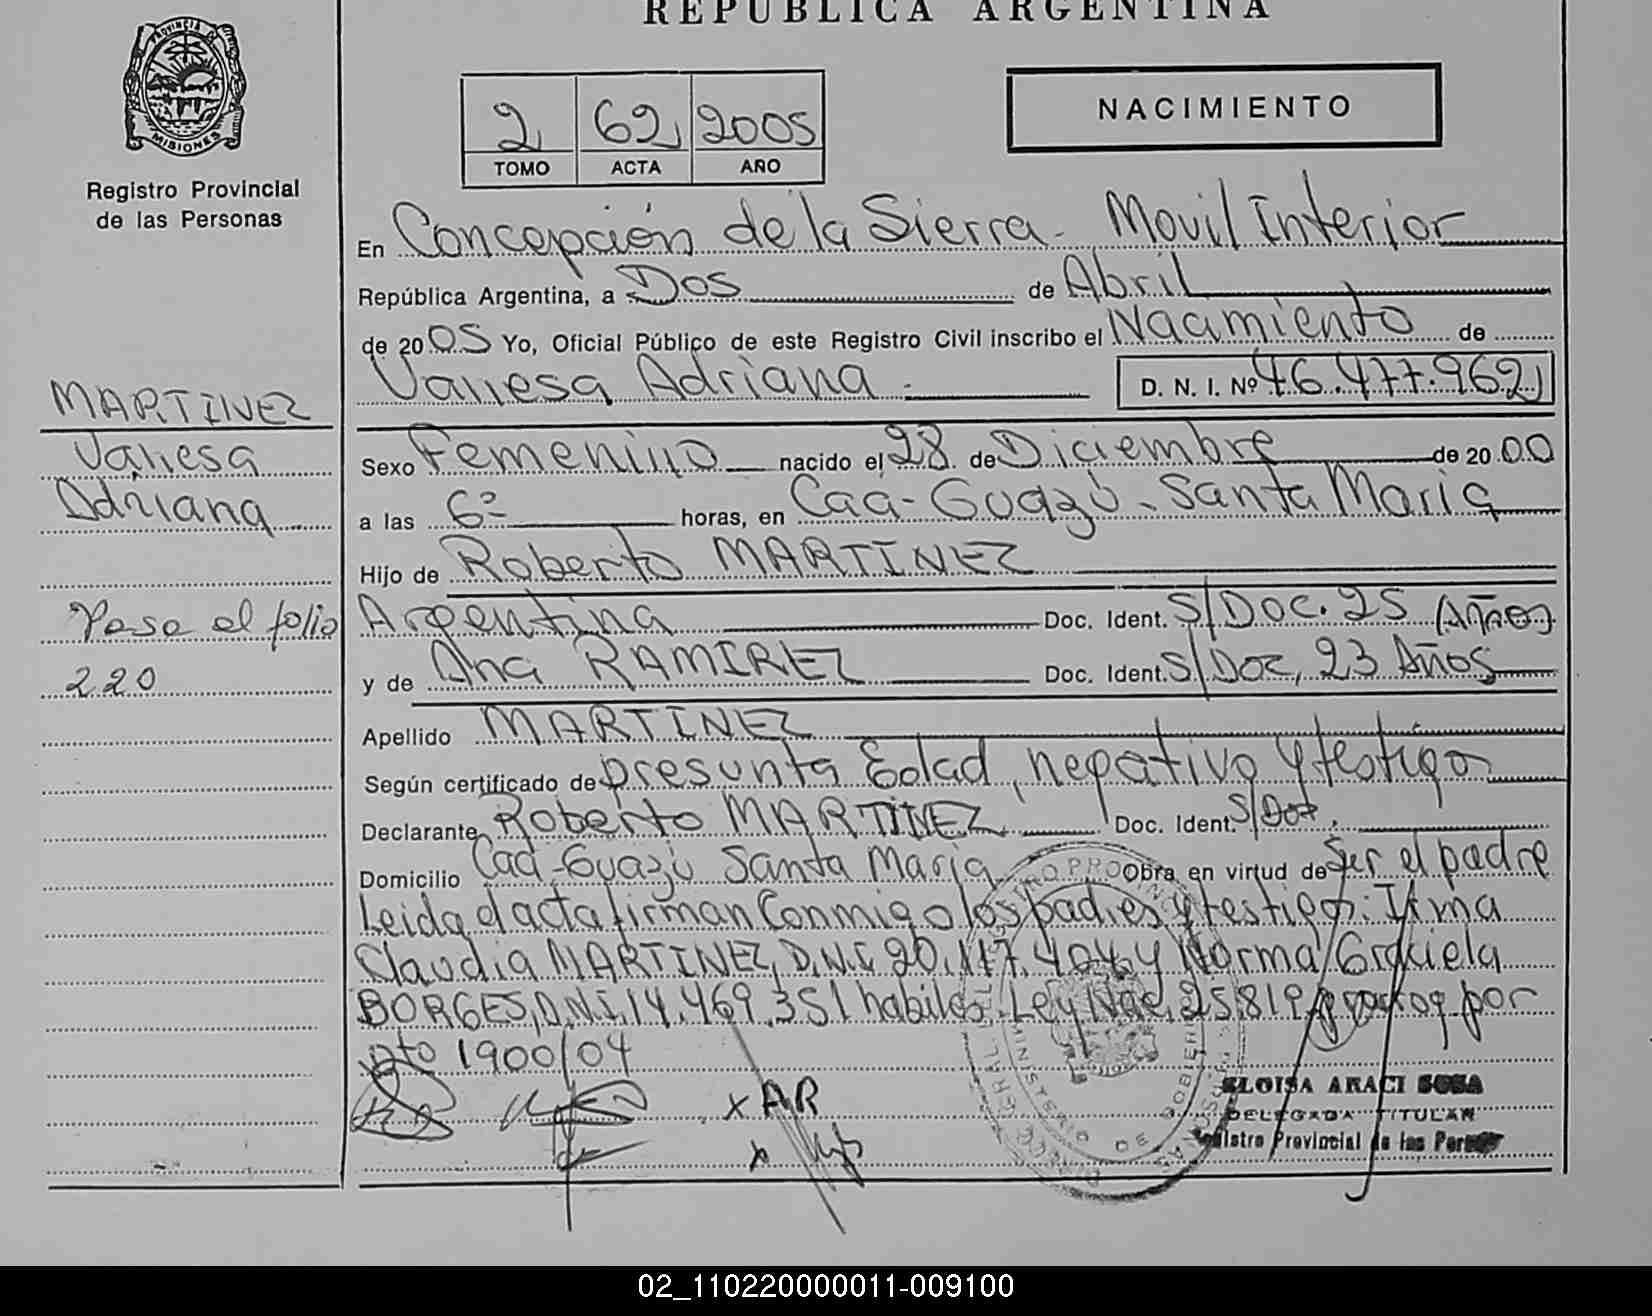 REPUBLICA ARGENTINA
PROVINCIA DE
MISIONES
Registro Provincial
de las Personas
2 62 2005
TOMO ACTA AÑO
NACIMIENTO
En Concepción de la Sierra - Movil Interior
República Argentina, a Dos de Abril
de 2005 Yo, Oficial Público de este Registro Civil inscribo el Nacimiento de
Vanesa Adriana D. N. I. Nº 46.477.962
MARTINEZ
Vanesa
Adriana
Pase al folio
220
Sexo Femenino nacido el 28 de Diciembre de 2000
a las 6 horas, en Caa-Guazú - Santa Maria
Hijo de Roberto MARTINEZ
Argentina Doc. Ident. S/Doc. 25 (Años)
y de Ana RAMIREZ Doc. Ident. S/Doc, 23 Años
Apellido MARTINEZ
Según certificado de presunta Edad, negativo y testigo
Declarante Roberto MARTINEZ Doc. Ident. S/Doc.
Domicilio Caa-Guazú Santa Maria Obra en virtud de Ser el padre
Leida el acta firman Conmigo los padres y testigo: Irma
Claudia MARTINEZ, D.N.I. 20.117. y Norma Graciela
BORGES, D.N.I. 14.469.351 habiles. Ley Nac. 25.819 por
Dto 1900/04
x AR
ELOISA ARACI SOSA
DELEGADA TITULAR
Registro Provincial de las Personas
02_110220000011-009100